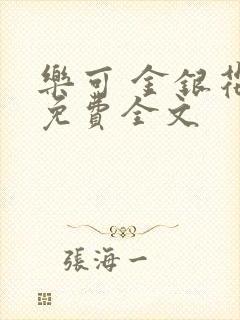 樂可 金銀花
免費全文
張海一